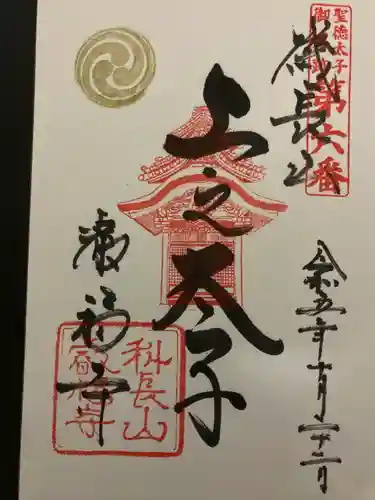 聖徳太子
御遺跡
第六番
磯長山
上之太子
叡福寺
科長山
叡福寺
令和五年十月二十二日